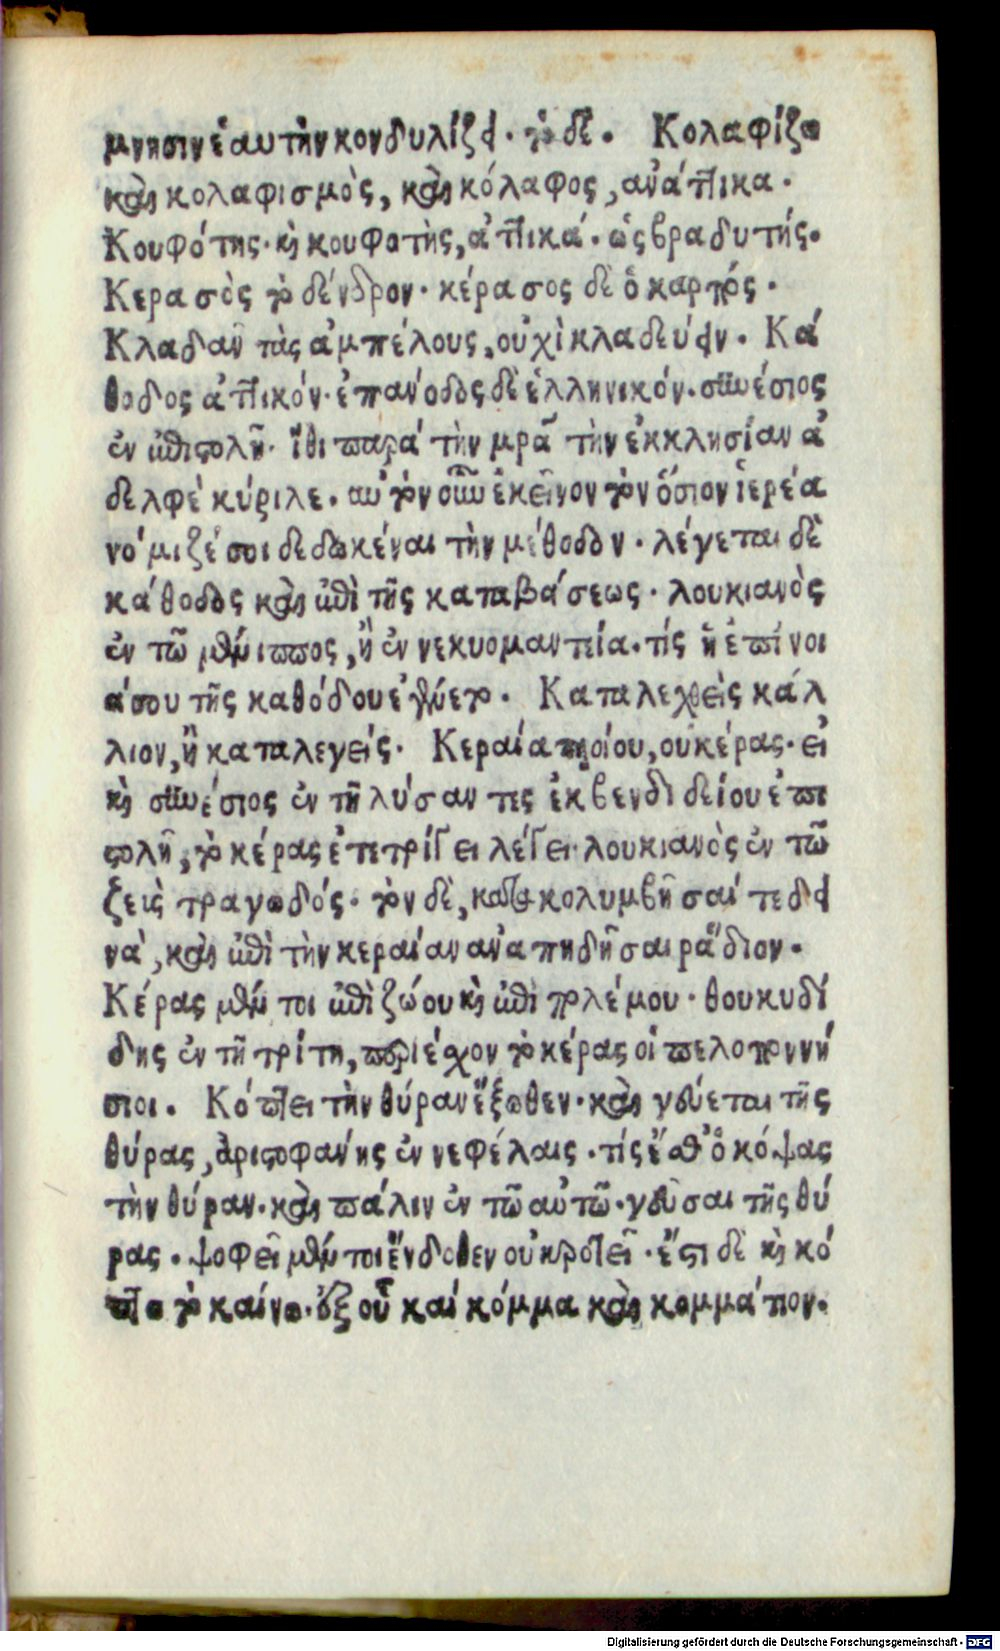 μνησιν ἑαυτὴν κονδυλίζει. τὸ δέ. Κολαφίζω
καὶ κολαφισμὸς, καὶ κόλαφος, ἀνάττικα.
Κουφότης. κὶ κουφοτὴς, ἀττικά. ὡς βραδυτής.
Κερασὸς τὸ δένδρον. κέρασος δὲ ὁ καρπός.
Κλαδᾶν τὰς ἀμπέλους, οὐχὶ κλαδεύειν. Κά
θοδος ἀττικόν. ἐπανόδος δὲ ἑλληνικόν. συνέσιος
ἐν ἐπιστολῇ. ἴθι παρὰ τὴν μρᾶ τὴν ἐκκλησίαν ἀ
δελφὲ κύριλε. αὐτὸν οὖν ἐκεῖνον τὸν ὅσιον ἱερέα
νόμιζέ σοι δεδωκέναι τὴν μέθοδον. λέγεται δὲ
κάθοδος καὶ ἐπὶ τῆς καταβάσεως. λουκιανὸς
ἐν τῶ μένιππος, ἢ ἐν νεκυομαντεία. τίς ἡ ἐπίνοι
ά σου τῆς καθόδου ἐγένετο. Καταλεχθεὶς κάλ
λιον, ἢ καταλεγείς. Κεραία πλοίου, οὐ κέρας. εἰ
κὶ συνέσιος ἐν τῇ λύσαντες ἐκ βενδιδείου ἐπι
στολῇ, τὸ κέρας ἐπετρίγει λέγει. λουκιανὸς ἐν τῶ
ζεὺς τραγωδός. τὸν δὲ, κατακολυμβῆσαί τε δει
νὰ, καὶ ἐπὶ τὴν κεραίαν ἀναπηδῆσαι ῥάδιον.
Κέρας μέν τοι ἐπὶ ζώου κὶ ἐπὶ πολέμου. θουκυδί
δης ἐν τῇ τρίτη, περιέσχον τὸ κέρας οἱ πελοποννή
σιοι. Κόπτει τὴν θύραν ἔξωθεν. καὶ γεύεται τῆς
θύρας, ἀριστοφάνης ἐν νεφέλαις. τίς ἔσθ' ὁ κόψας
τὴν θύραν. καὶ πάλιν ἐν τῶ αὐτῶ. γεῦσαι τῆς θύ
ρας. ψοφεῖ μέν τοι ἔνδοθεν οὐ κροτεῖ. ἔστι δὲ κὶ κό
πτω τὸ καίνω. ἐξ οὗ καί κόμμα καὶ κομμάτιον.
Digitalisierung gefördert durch die Deutsche Forschungsgemeinschaft - DFG